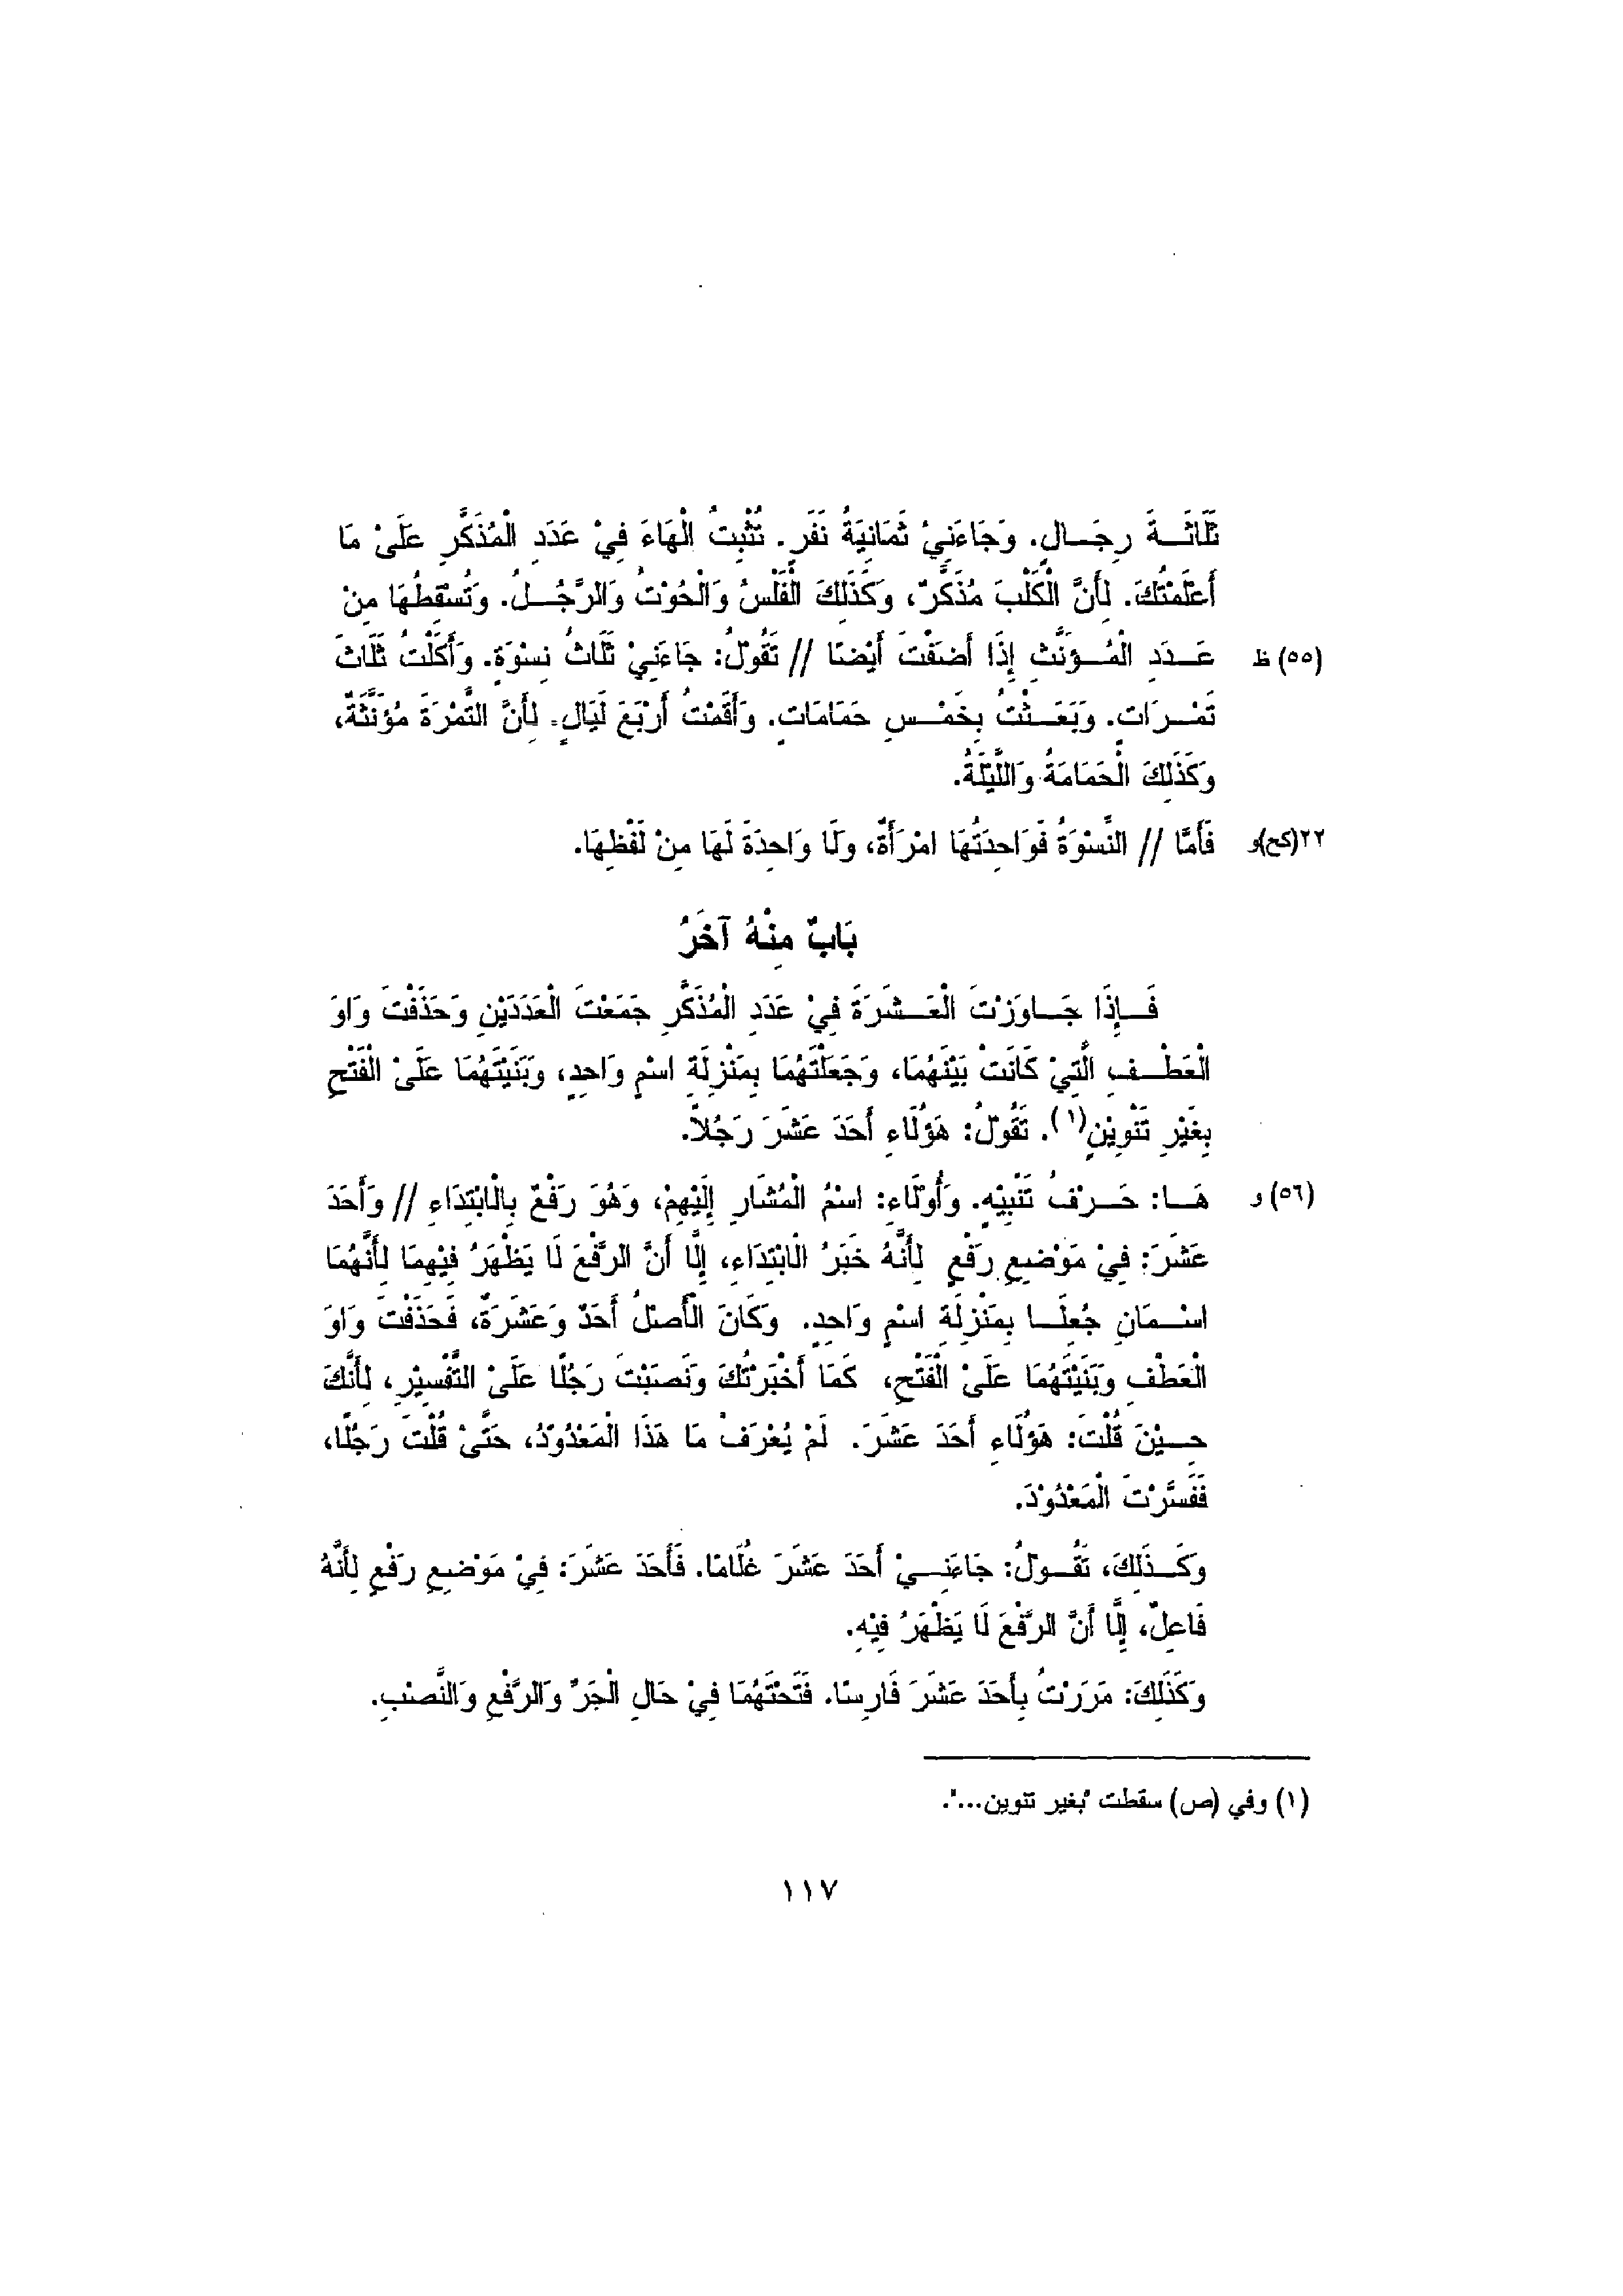 ثَلَاثَـةَ رِجَـالٍ. وَجَاءَنِيْ ثَمَانِيَةُ نَفَرٍ. تُثْبِتُ الْهَاءَ فِيْ عَدَدِ الْمُذَكَّرِ عَلَىْ مَا
أَعْلَمْتُكَ. لِأَنَّ الْكَلْبَ مُذَكَّرٌ، وَكَذَلِكَ الْفَلْسُ وَالْحُوْتُ وَالرَّجُـلُ. وَتُسْقِطُهَا مِنْ
(٥٥) ظ عَـدَدِ الْمُـؤَنَّثِ إِذَا أَضَفْتَ أَيْضًا // تَقُوْلُ: جَاءَنِيْ ثَلَاثُ نِسْوَةٍ. وَأَكَلْتُ ثَلَاثَ
تَمْـرَاتٍ. وَبَعَـثْتُ بِخَمْـسِ حَمَامَاتٍ. وَأَقَمْتُ أَرْبَعَ لَيَالٍ. لِأَنَّ التَّمْرَةَ مُؤَنَّثَةٌ،
وَكَذَلِكَ الْحَمَامَةُ وَاللَّيْلَةُ.
٢٢(كح)و فَأَمَّا // النِّسْوَةُ فَوَاحِدَتُهَا امْرَأَةٌ، وَلَا وَاحِدَةَ لَهَا مِنْ لَفْظِهَا.
بَابٌ مِنْهُ آخَرُ
فَـإِذَا جَـاوَزْتَ الْعَـشَرَةَ فِيْ عَدَدِ الْمُذَكَّرِ جَمَعْتَ الْعَدَدَيْنِ وَحَذَفْتَ وَاوَ
الْعَطْـفِ الَّتِيْ كَانَتْ بَيْنَهُمَا، وَجَعَلْتَهُمَا بِمَنْزِلَةِ اسْمٍ وَاحِدٍ، وَبَنَيْتَهُمَا عَلَىْ الْفَتْحِ
بِغَيْرِ تَنْوِيْنٍ(١). تَقُوْلُ: هَؤُلَاءِ أَحَدَ عَشَرَ رَجُلاً.
(٥٦) و هَـا: حَـرْفُ تَنْبِيْهٍ. وَأُولَاءِ: اسْمُ الْمُشَارِ إِلَيْهِمْ، وَهُوَ رَفْعٌ بِالْابْتِدَاءِ // وَأَحَدَ
عَشَرَ: فِيْ مَوْضِعِ رَفْعٍ لِأَنَّهُ خَبَرُ الْابْتِدَاءِ، إِلَّا أَنَّ الرَّفْعَ لَا يَظْهَرُ فِيْهِمَا لِأَنَّهُمَا
اسْـمَانِ جُعِلَـا بِمَنْزِلَةِ اسْمٍ وَاحِدٍ. وَكَانَ الْأَصْلُ أَحَدٌ وَعَشَرَةٌ، فَحَذَفْتَ وَاوَ
الْعَطْفِ وَبَنَيْتَهُمَا عَلَىْ الْفَتْحِ، كَمَا أَخْبَرْتُكَ وَنَصَبْتَ رَجُلًا عَلَىْ التَّفْسِيْرِ، لِأَنَّكَ
حِـيْنَ قُلْتَ: هَؤُلَاءِ أَحَدَ عَشَرَ. لَمْ يُعْرَفْ مَا هَذَا الْمَعْدُوْدُ، حَتَّىْ قُلْتَ رَجُلًا،
فَفَسَّرْتَ الْمَعْدُوْدَ.
وَكَـذَلِكَ، تَقُـوْلُ: جَاءَنِـيْ أَحَدَ عَشَرَ غُلَامًا. فَأَحَدَ عَشَرَ: فِيْ مَوْضِعِ رَفْعٍ لِأَنَّهُ
فَاعِلٌ، إِلَّا أَنَّ الرَّفْعَ لَا يَظْهَرُ فِيْهِ.
وَكَذَلِكَ: مَرَرْتُ بِأَحَدَ عَشَرَ فَارِسًا. فَتَحْتَهُمَا فِيْ حَالِ الْجَرِّ وَالرَّفْعِ وَالنَّصْبِ.
(١) وفي (ص) سقطت "بغير تنوين...".
١١٧